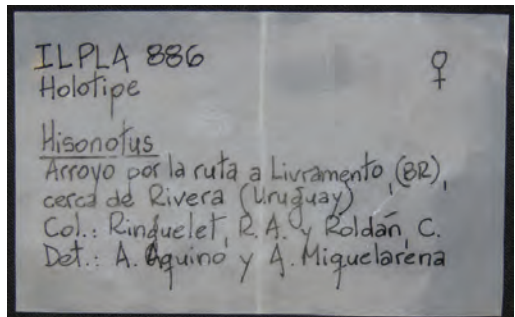 ILPLA 886 ♀
Holotipe
Hisonotus
Arroyo por la ruta a Livramento, (BR),
cerca de Rivera (Uruguay)
Col.: Ringuelet, R. A. y Roldán, C.
Det.: A. Aquino y A. Miquelarena